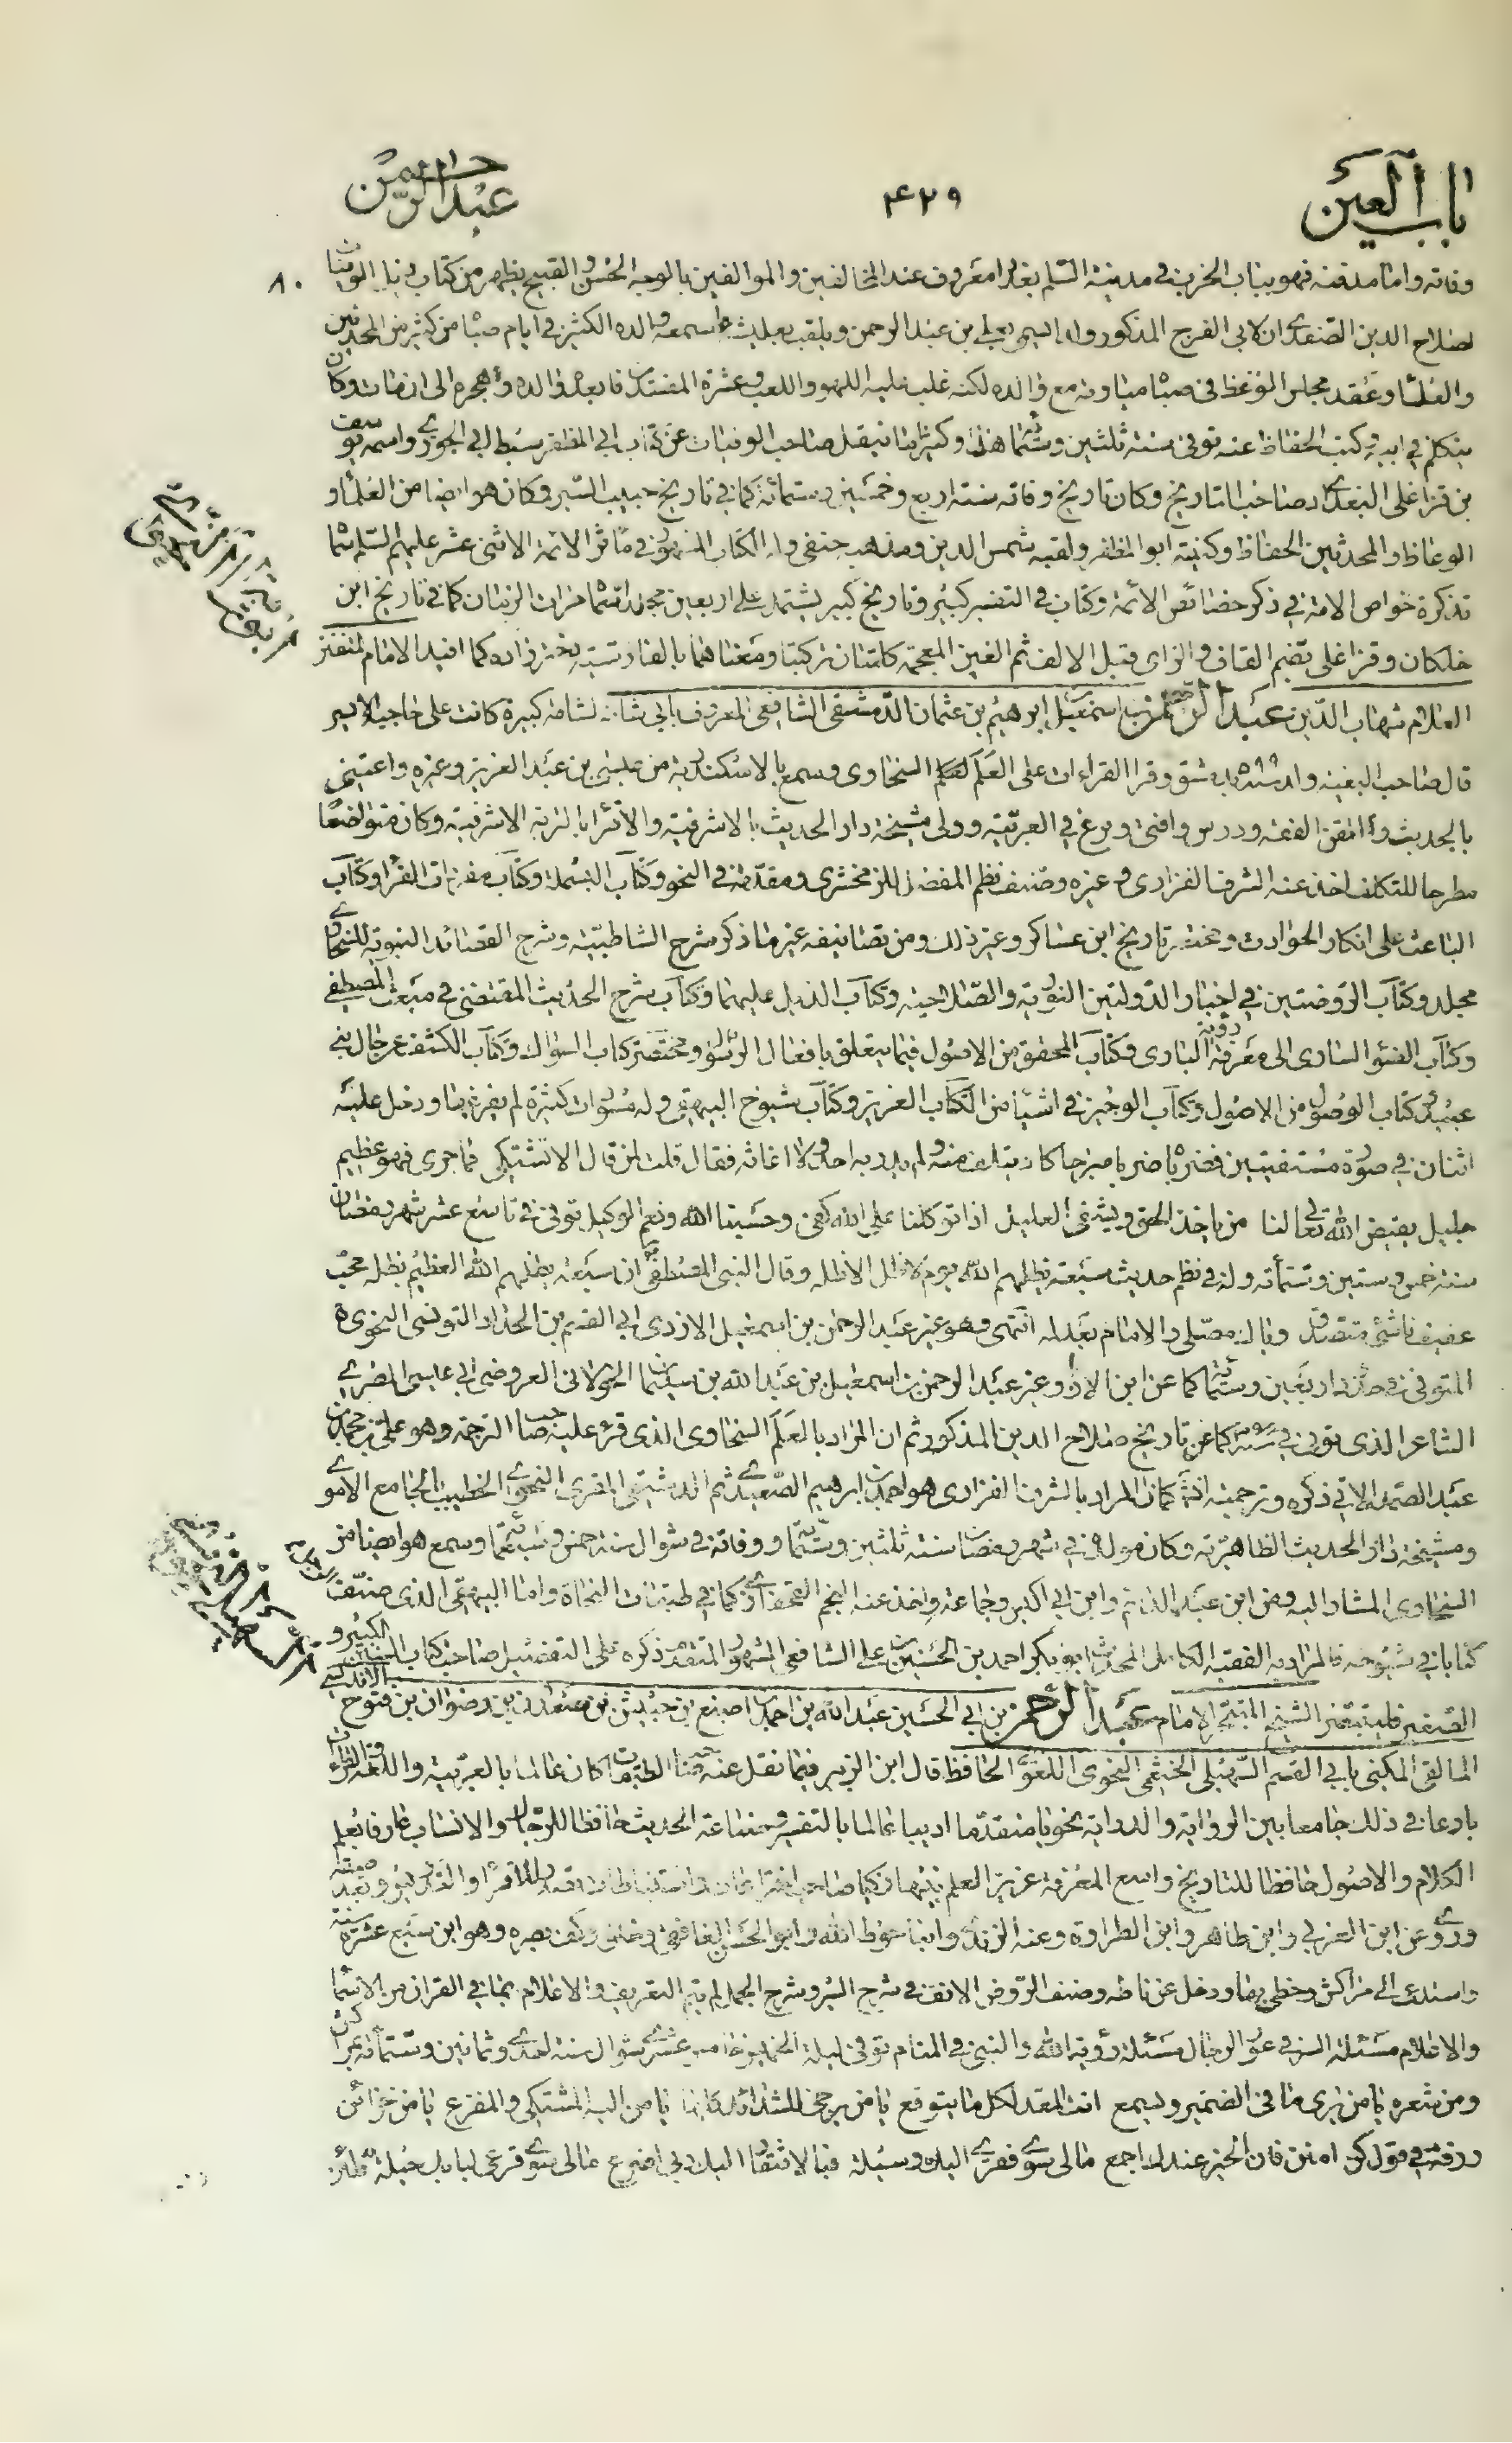 باب العين
۴۲۹
عبد الرحمن
وفاته واما مدفنه فهو بباب الحرب في مدينة السلم بغداد معروف عند المخالفين والموالفين بالوجه الحسن و القبيح يظهر من كتاب الوفيات
لصلاح الدين الصفدي ان لابي الفرج المذكور ولدا اسمه علي بن عبد الرحمن ويلقب واسمعه والده الكثير في ايام صباه من كثير من المحدثين
والعلماء وعقد مجلس الوعظ في صباه مع والده لكنه غلب عليه اللهو واللعب وعشرة المفسدين فابعده والده وهجره الى ان مات وكان
يتكلم في ابيه وكتب الحفاظ عنه توفى سنة ثلثين وستمائة هذا وكثيرا ما ينقل صاحب الوفيات عن كتاب ابي المظفر سبط ابي الجوزي واسمه يوسف
بن قزاغلى البغدادي صاحب التاريخ وكان تاريخ وفاته سنة اربع وخمسين وستمائة كما في تاريخ حبيب السير وكان هو ايضا من العلماء و
الوعاظ والمحدثين الحفاظ وكنيته ابو المظفر ولقبه شمس الدين ومذهبه حنفى وله الكتاب المشهور في مآثر الائمة الاثنى عشر عليهم السلم سماه
تذكرة خواص الامة في ذكر خصائص الائمة وكتاب في التفسير كبير وتاريخ كبير يشتمل على اربعين مجلدا سماه مرآة الزمان كما في تاريخ ابن
خلكان وقزاغلى بضم القاف والزاى قبل الالف ثم الغين المعجمة كلمتان تركيتان ومعناهما بالفارسية دختر زاده كما افيد الامام المتقن
العلام شهاب الدين عبد الرحمن بن اسمعيل بن ابرهيم بن عثمان الدمشقى الشافعى المعروف بابي شامة لشامة كبيرة كانت على حاجبه الايسر
قال صاحب البغية ولد بدمشق وقرا القراءات على العلم السخاوى وسمع بالاسكندرية من عيسى بن عبد العزيز وغيره واعتنى
بالحديث واتقن الفقه ودرس وافتى وبرع في العربية وولى مشيخة دار الحديث بالاشرفية والاقراء بالتربة الاشرفية وكان متواضعا
مطرحا للتكلف اخذ عنه الشرف الفزارى وغيره وصنف نظم المفصل للزمخشرى ومقدمة في النحو وكتاب البسملة وكتاب مفردات القراء وكتاب
الباعث على انكار الحوادث ومختصر تاريخ ابن عساكر وغير ذلك ومن تصانيفه غير ما ذكر شرح الشاطبية وشرح القصائد النبوية للسخاوي
مجلد وكتاب الروضتين في اخبار الدولتين النورية والصلاحية وكتاب الذيل عليهما وكتاب شرح الحديث المقتفى في مبعث المصطفى
وكتاب الضوء السارى الى معرفة رؤية البارى وكتاب المحقق من الاصول فيما يتعلق بافعال الرسول ومختصر كتاب السواك وكتاب الكشف عن حال بني
عبيد وكتاب الوصول من الاصول وكتاب الوجيز في اشياء من الكتاب العزيز وكتاب شيوخ البيهقى وله مسودات كثيرة لم يفرغها ودخل عليه
اثنان في صورة مستفتيين فضرباه ضربا مبرحا كاد يتلف منه ولم يدر به احد ولا اغاثه فقال قلت لمن قال الا تشتكى فما جرى فهو عظيم
جليل يقيض الله تعالى لنا من ياخذ الحق ويشفى الغليل اذا توكلنا على الله كفى وحسبنا الله ونعم الوكيل توفى في تاسع عشر شهر رمضان
سنة خمس وستين وستمأة وله في نظم حديث سبعة يظلهم الله يوم لا ظل الا ظله وقال النبى المصطفى ان سبعة يظلهم الله العظيم بظله محب
عفيف ناشئ متصدق وباك مصلى والامام بعدله انتهى وهو غير عبد الرحمن بن اسمعيل الازدى ابي القسم بن الحداد التونسى النحوى
المتوفى في حدود اربعين وستمائة كما عن ابن الابار وغير عبد الرحمن بن اسمعيل بن عبد الله بن سليمان الخولانى العروضى ابي عيسى المصري
الشاعر الذى توفى في كما عن تاريخ صلاح الدين المذكور ثم ان المراد بالعلم السخاوى الذى قرء عليه صاحب الترجمة وهو على بن محمد بن
عبد الصمد الاتى ذكره وترجمته انشاء كما ان المراد بالشرف الفزارى هو احمد بن ابرهيم الصعيدي ثم الدمشقى المقرى النحوي الخطيب بالجامع الاموي
ومشيخة دار الحديث الظاهرية وكان مولده في شهر رمضان سنة ثلثين وستمائة ووفاته في شوال سنة خمس وسبعمائة وسمع هو ايضا من
السخاوى المشار اليه ومن ابن عبد الدائم وابن ابي اليسر وجماعة واخذ عنه النجم القحفازي كما في طبقات النحاة واما البيهقى الذى صنف
كتابا في شيوخه فالمراد به الفقيه الكامل المحدث ابو بكر احمد بن الحسين بن على الشافعى المشهور المتقدم ذكره على التفضيل صاحب كتاب السنن الكبير و
الصغير فليتبصر الشيخ المتبحر الامام عبد الرحمن بن ابي الحسين عبد الله بن احمد بن اصبغ بن حبيش بن سعدون بن رضوان بن فتوح الاندلسي
المالقى المكنى بابي القسم السهيلى الخثعمى النحوى اللغوي الحافظ قال ابن الزبير فيما نقل عنه صاحب الطبقات كان عالما بالعربية واللغة والقراءات
بارعا في ذلك جامعا بين الرواية والدراية نحويا متقدما اديبا عالما بالتفسير وصناعة الحديث حافظا للرجال والانساب عارفا بعلم
الكلام والاصول حافظا للتاريخ واسع المعرفة غزير العلم نبيها ذكيا صاحب اختراعات واستنباطات تصدر للاقراء والتدريس وبعد صيته
وروي عن ابن العربي وابن طاهر وابن الطراوة وعنه الرندي وابنا حوط الله وابو الحسن الغافقى وخلق وكف بصره وهو ابن سبع عشرة سنة
واستدعى الى مراكش وحظى بها ودخل غرناطة وصنف الروض الانف في شرح السير وشرح الجمل لم يتم التعريف والاعلام بما في القران من الاسماء
والاعلام مسئلة السر في عور الدجال مسئلة رؤية الله والنبى في المنام توفى ليلة الخميس خامس عشري شوال سنة احدي وثمانين وستمأة بمراكش
ومن شعره يا من يرى ما في الضمير ويسمع انت المعد لكل ما يتوقع يا من يرجى للشدائد كلها يا من اليه المشتكى والمفزع يا من خزائن
رزقه في قول كن امنن فان الخير عندك اجمع مالى سوي فقري اليك وسيلة فبالافتقار اليك ربي اضرع مالى سوي قرعى لبابك حيلة فلئن